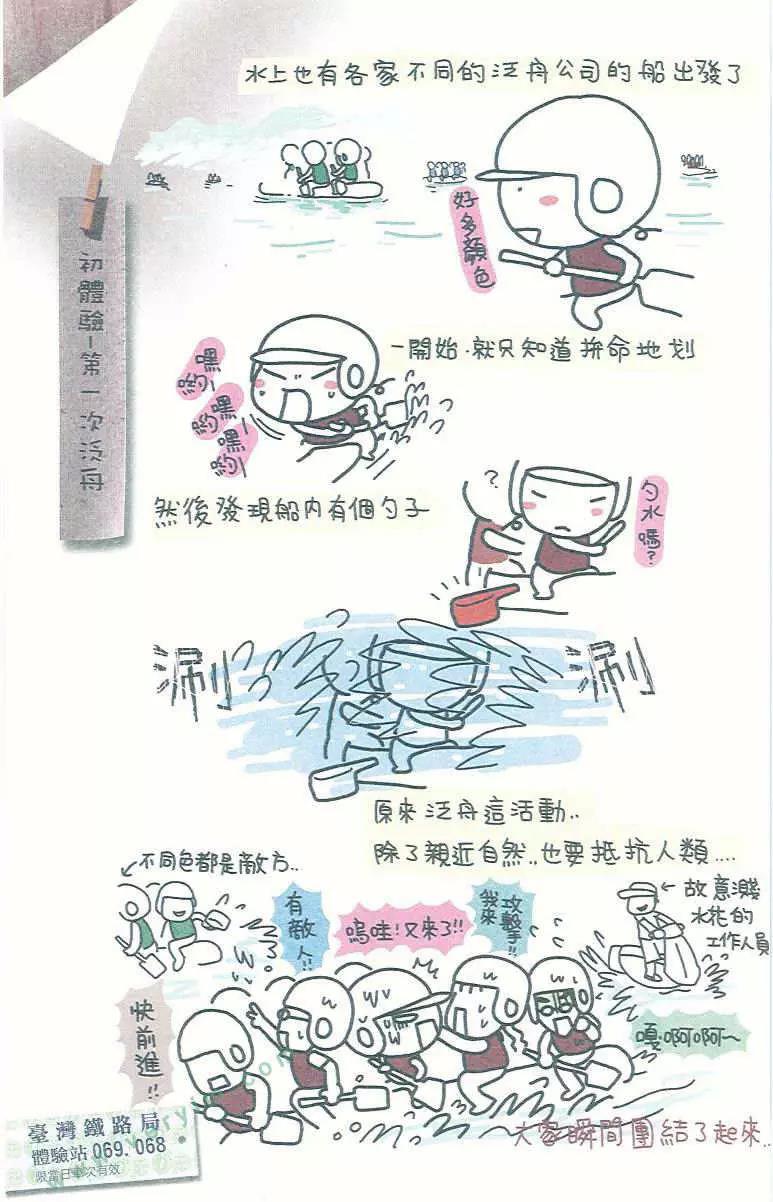 水上也有各家不同的泛舟公司的船出發了
好多顏色
初體驗-第一次泛舟
一開始.就只知道拚命地划
嘿喲
嘿喲
嘿喲
然後發現船內有個勺子
?
勺水嗎?
涮
涮
原來泛舟這活動..
除了親近自然..也要抵抗人類....
不同色都是敵方..
故意濺
水花的
工作人員
有敵人!!
嗚哇!又來了!!
我來
攻擊!!
快前進!!
嘎.啊啊~
大家瞬間團結了起來..
臺灣鐵路局
體驗站 069.068
限當日車次有效